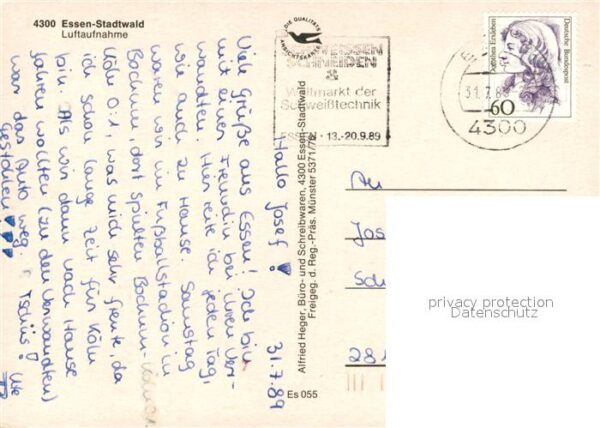 4300 Essen-Stadtwald
Luftaufnahme
DIE QUALITÄTS
ANSICHTSKARTE
SCHWEISSEN
SCHNEIDEN
&
Weltmarkt der
Schweißtechnik
ESSEN · 13.-20.9.89
31.7.89
4300
Dorothea Erxleben
Deutsche Bundespost
60
31.7.89
Hallo Josef!
Viele Grüße aus Essen! Ich bin
mit einer Freundin bei ihren Ver-
wandten. Hier reite ich jeden Tag,
wie auch zu Hause. Samstag
waren wir im Fußballstadion in
Bochum, dort spielten Bochum-
Köln 0:2, was mich sehr freute, da
ich schon lange Zeit für Köln
bin. Als wir dann nach Hause
fahren wollten (zu den Verwandten)
war das Auto weg. Tschüs! Ute
Gestohlen!!!
Alfried Heger, Büro- und Schreibwaren, 4300 Essen-Stadtwald
Freigeg. d. Reg.-Präs. Münster 5371/76
Es 055
An
Jos
Sch
28
privacy protection
Datenschutz